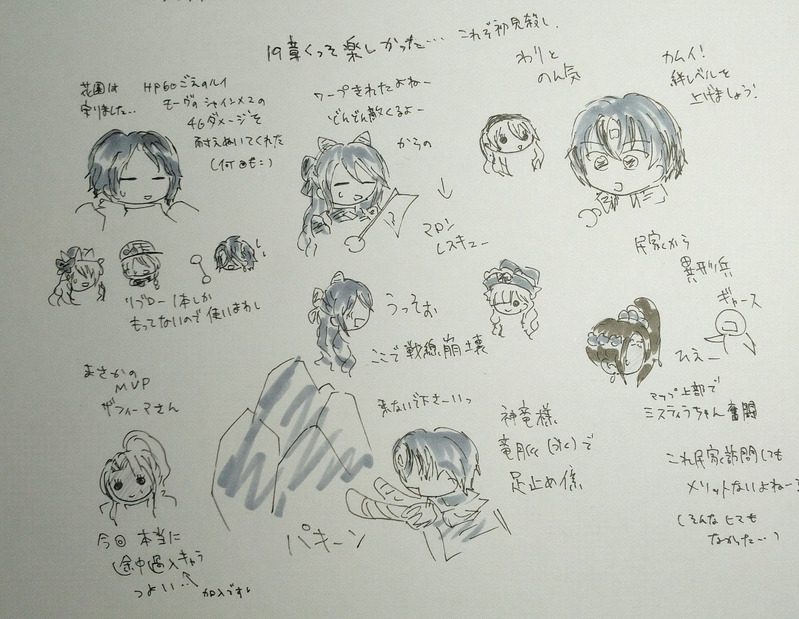 19章くっそ楽しかった… これぞ初見殺し.
花園は
守りました…
HP60ごえのルイ
モーヴのシャインメスの
46ダメージを
耐えぬいてくれた
(何回も:)
ワープされたよねー
どんどん敵くるよー
からの
↓
マロン
レスキュー
わりと
のん気
カムイ!
絆レベルを
上げましょう!
リブロー1本しか
もってないので使いまわし
うっそぉ
ここで戦線崩壊
民家から
異形兵
ギャース
ひえー
マップ上部で
ミスティラちゃん奮闘
まさかの
MVP
ザフィーマさん
来ないで下さーいっ
神竜様
竜脈(氷)で
足止め係
これ民家訪問しても
メリットないよねー?
(そんなことも
なかった…)
パキーン
今回本当に
途中過入キャラ
つよい…
加入です!